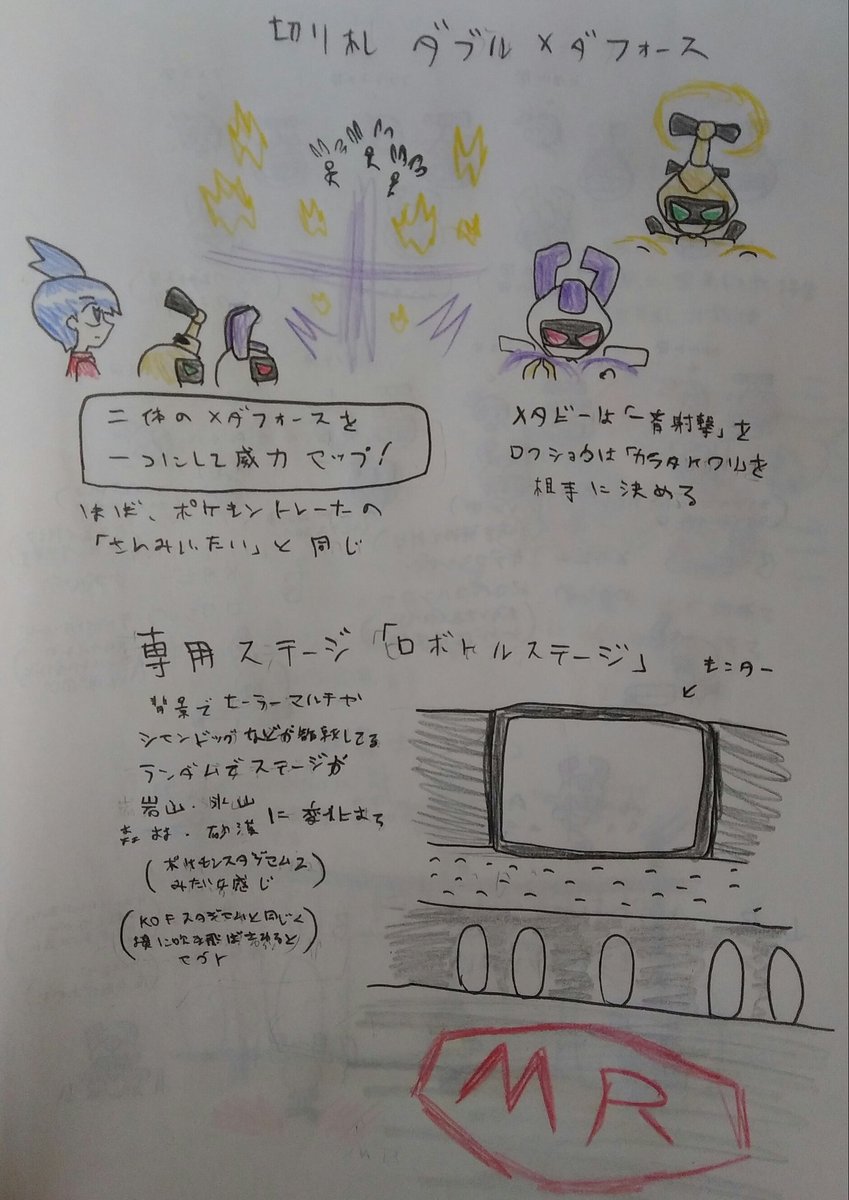 切り札 ダブルメダフォース
二体のメダフォースを
一つにして威力アップ!
ほぼ、ポケモントレーナーの
「さんみいったい」と同じ
メタビーは「一斉射撃」を
ロクショウは「カラタケワリ」を
相手に決める
専用ステージ「ロボトルステージ」
モニター
背景でセーラーマルチや
シアンドッグなどが観戦してる
ランダムでステージが
岩山・氷山
森林・砂漠 に変化する
(ポケモンスタジアム2
みたいな感じ)
(KOFスタジアムと同じく
横に吹き飛ばされると
アウト)
MR